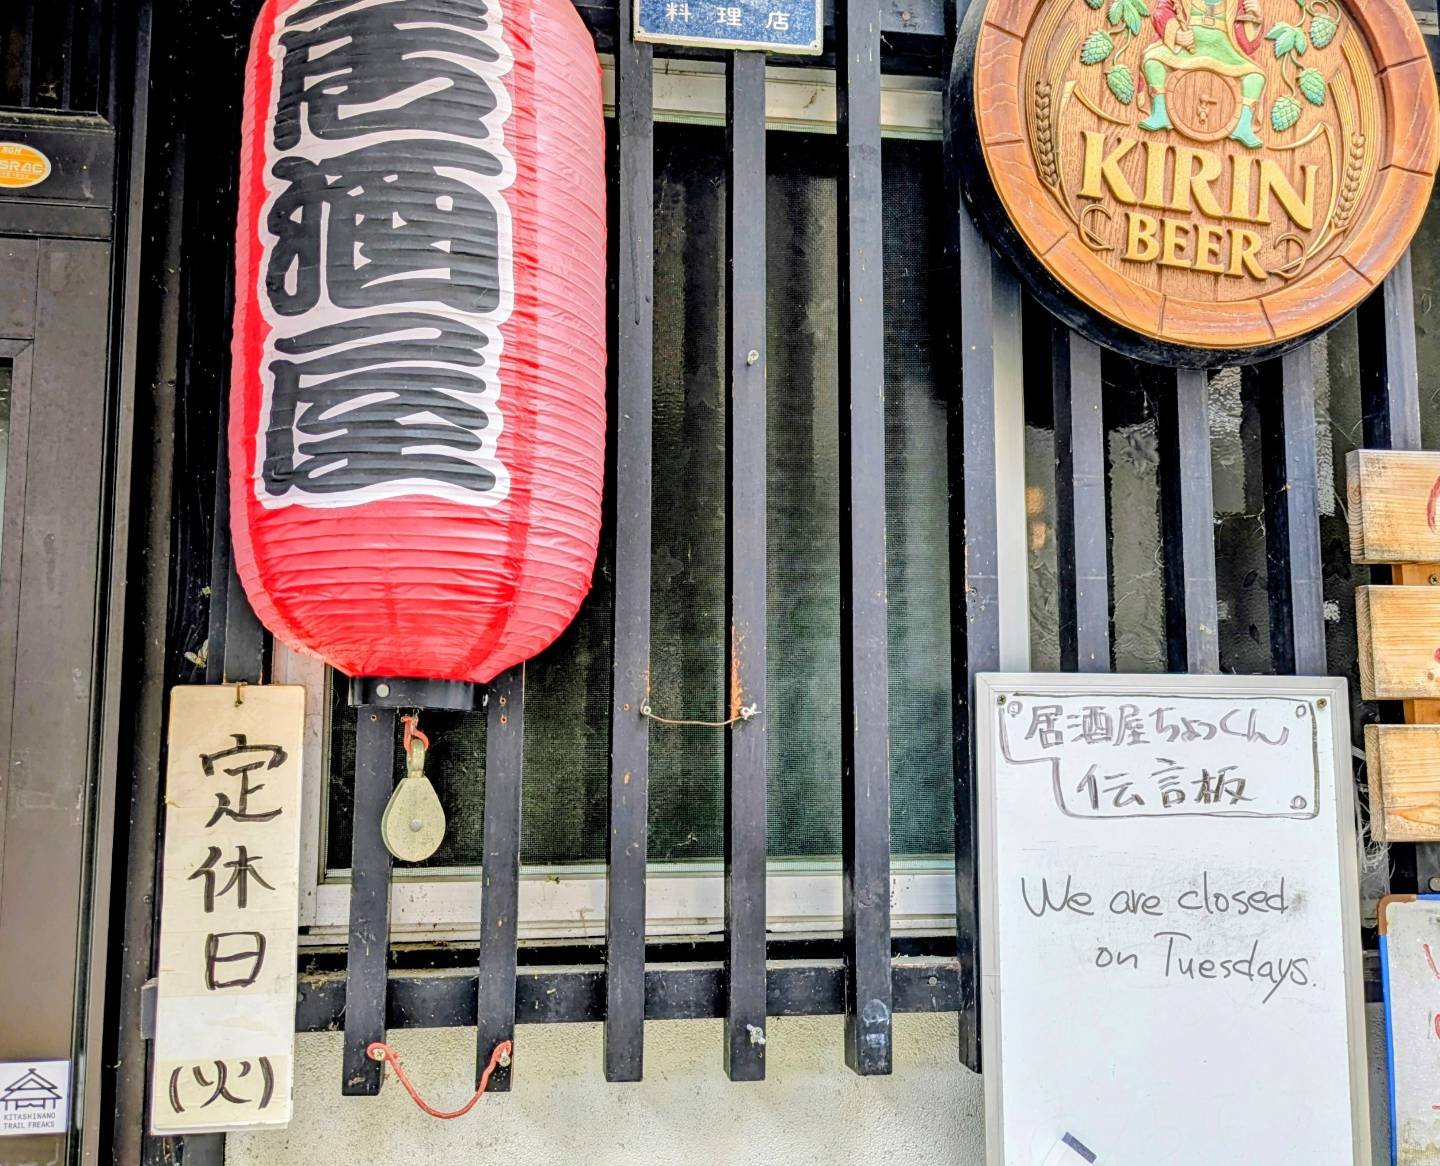 料理店
居酒屋
KIRIN
BEER
定休日
(火)
居酒屋ちょっくん
伝言板
We are closed
on Tuesdays.
KITASHINANO
TRAIL FREAKS